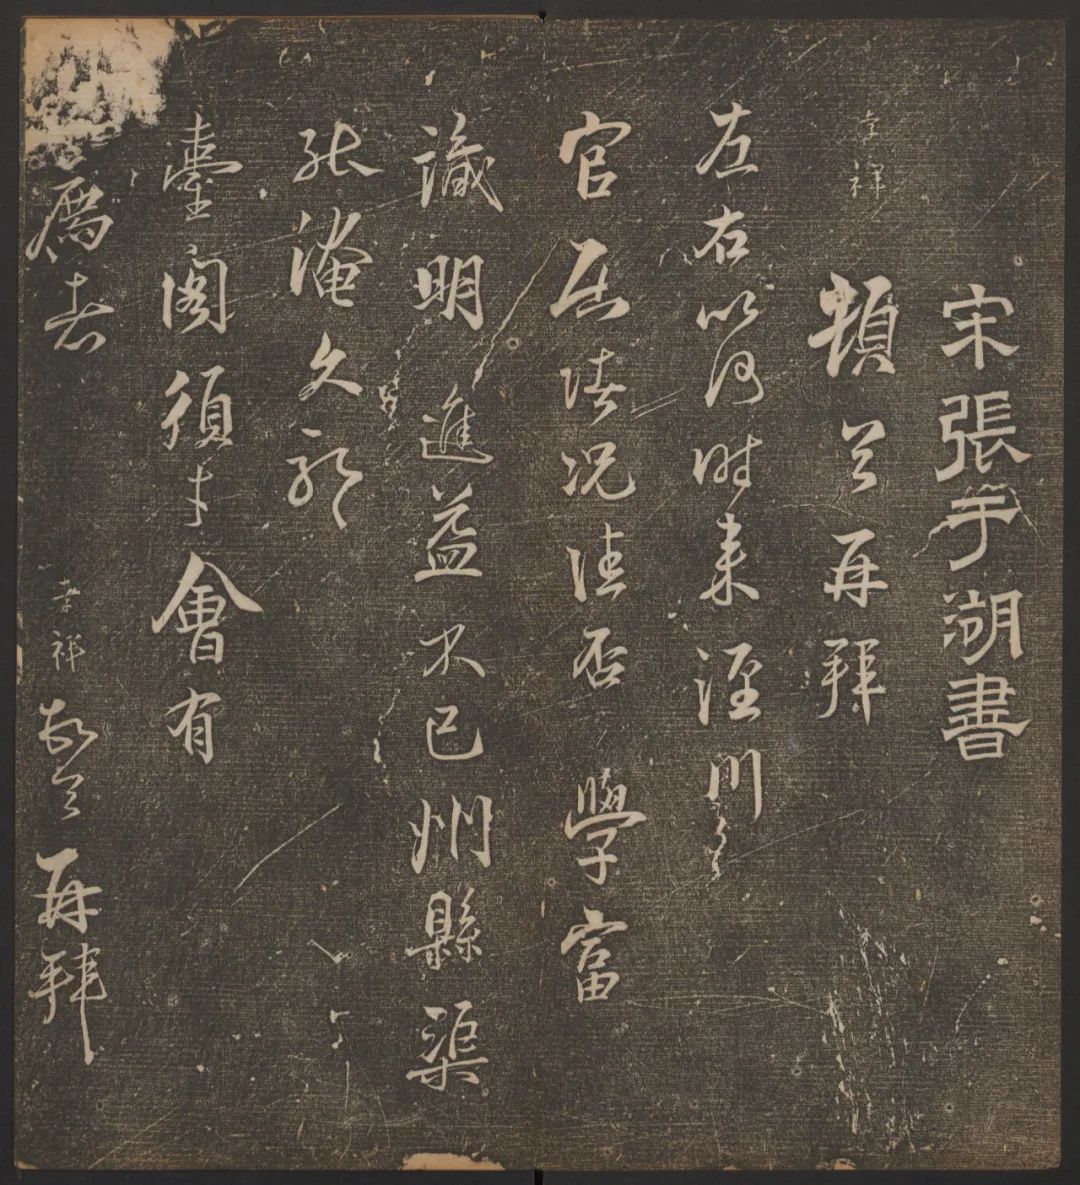 宋張于湖書
孝祥
頓首再拜
左右以何時來涇川
官居情況佳否學富
識明進益不已州縣渠
能淹久耶
臺閣須才會有
薦者孝祥頓首再拜